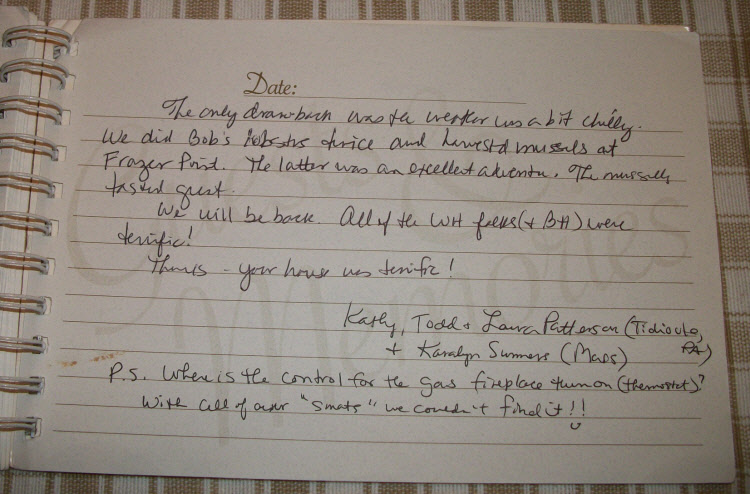 Date:
The only draw-back was the weather was a bit chilly.
We did Bob's lobsters twice and harvestd mussels at
Frazer Point. The latter was an excellent adventure. The mussells
tasted great.
We will be back. All of the WH folks (+ BH) were
terrific!
Thanks - your house was terrific!
Kathy, Todd + Laura Patterson (Tidioute,
PA)
+ Karalyn Summers (Mass)
P.S. Where is the control for the gas fireplace turn on (thermostat)?
With all of our "smarts" we couldn't find it!!
Guests & Memories